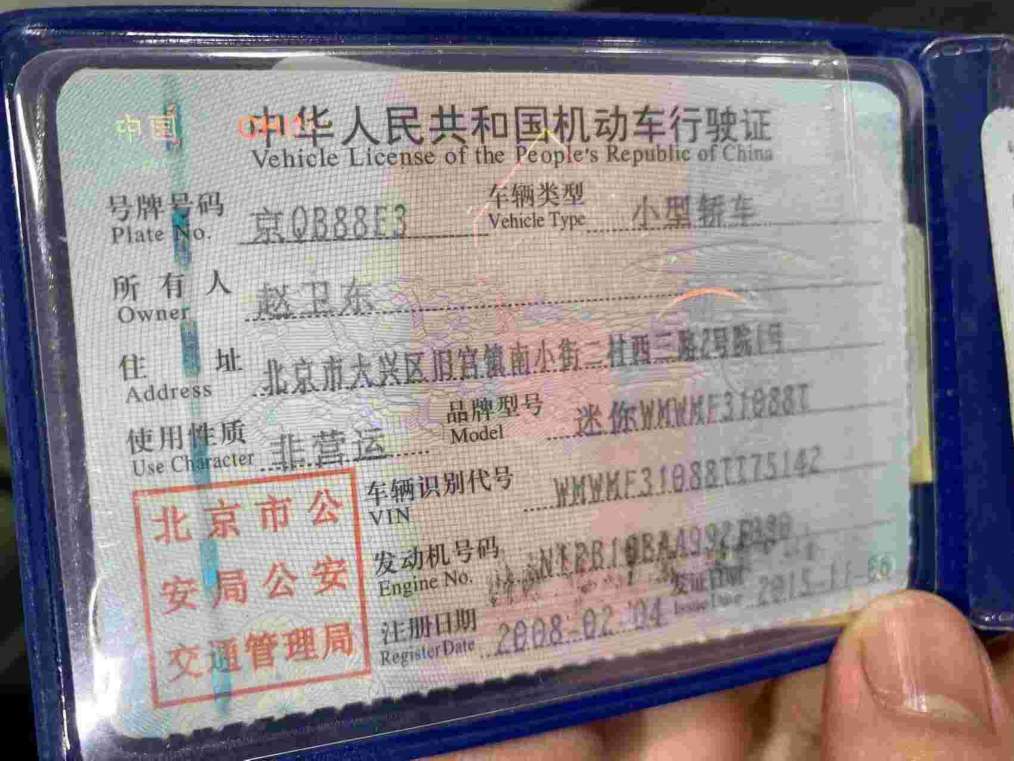 中国 中华人民共和国机动车行驶证
Vehicle License of the People's Republic of China
号牌号码 京QB88E3 车辆类型 小型轿车
Plate No. Vehicle Type
所有人 赵卫东
Owner
住址 北京市大兴区旧宫镇南小街二村西三路2号院1号
Address
使用性质 非营运 品牌型号 迷你WMWMF31088T
Use Character Model
北京市公
安局公安
交通管理局
车辆识别代号 WMWMF31088TT75142
VIN
发动机号码
Engine No.
注册日期 2008-02-04 发证日期 2015-11-
Register Date Issue Date